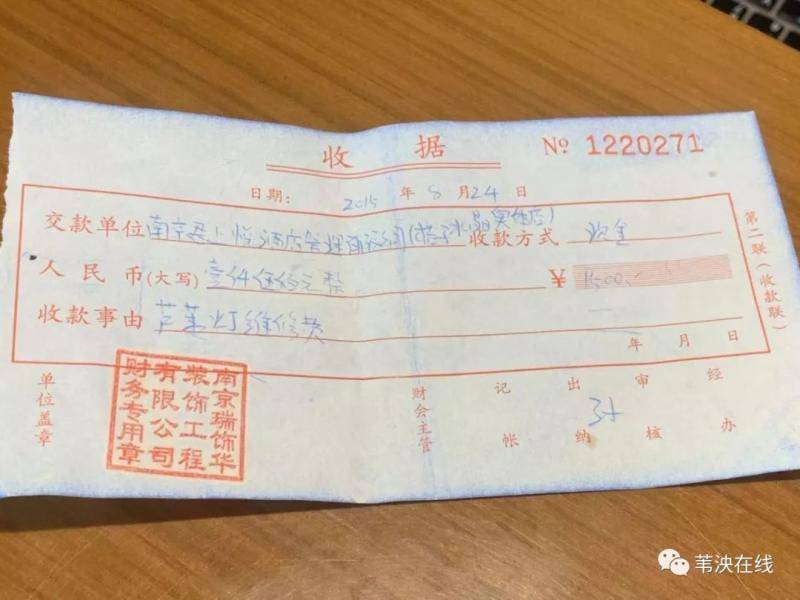 收据
№ 1220271
日期: 2015 年 8 月 24 日
交款单位 南京 上悦酒店 收款方式 现金
人民币(大写) 壹仟伍佰元整 ¥ 1500.—
收款事由 灯维修费
年 月 日
第二联(收款联)
单位盖章
南京瑞饰华
装饰工程
有限公司
财务专用章
财会主管
记帐
出纳
审核
经办
苇泱在线